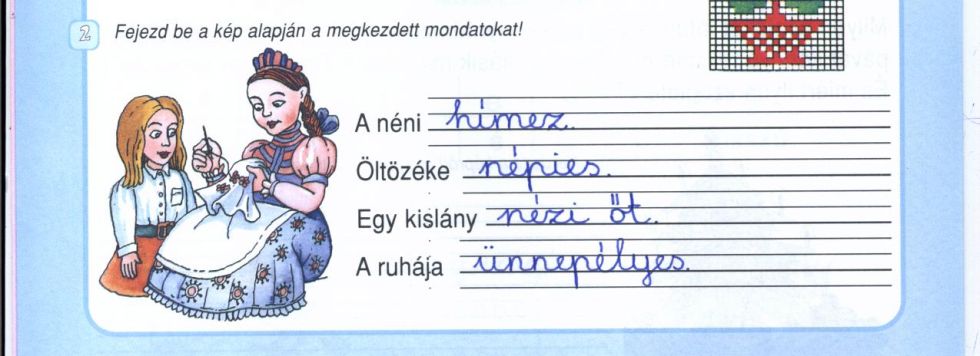 2 Fejezd be a kép alapján a megkezdett mondatokat!
A néni hímez.
Öltözéke népies.
Egy kislány nézi őt.
A ruhája ünnepélyes.